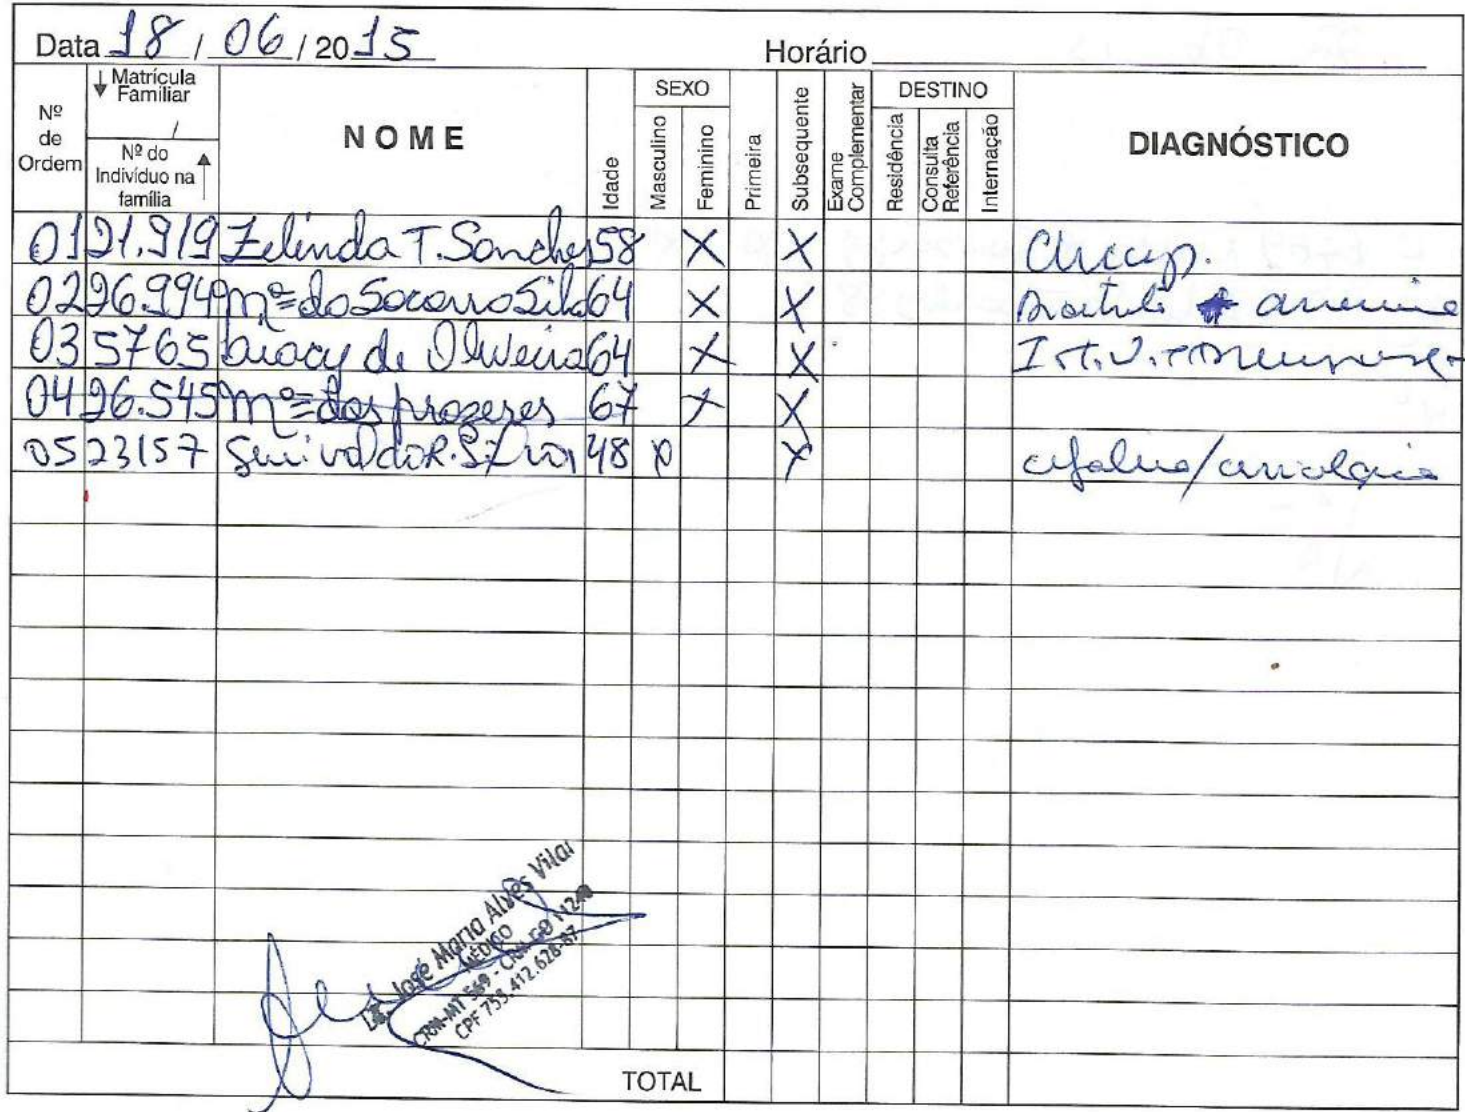 Data 18 / 06 / 2015 Horário
Nº de Ordem
Matrícula Familiar
/
Nº do Indivíduo na família
NOME
Idade
SEXO
Masculino
Feminino
Primeira
Subsequente
Exame Complementar
DESTINO
Residência
Consulta Referência
Internação
DIAGNÓSTICO
01 21.919 Zelinda T. Sanches 58 X X
02 26.994 Mª do Socorro Silva 64 X X anemia
03 5765 de Oliveira 64 X X
04 26.545 Mª dos prazeres 67 X X
05 23157 R. Silva 48 X X
José Maria Alves Vilar
MÉDICO
CRM-MT 569 - CRM-GO
CPF
TOTAL